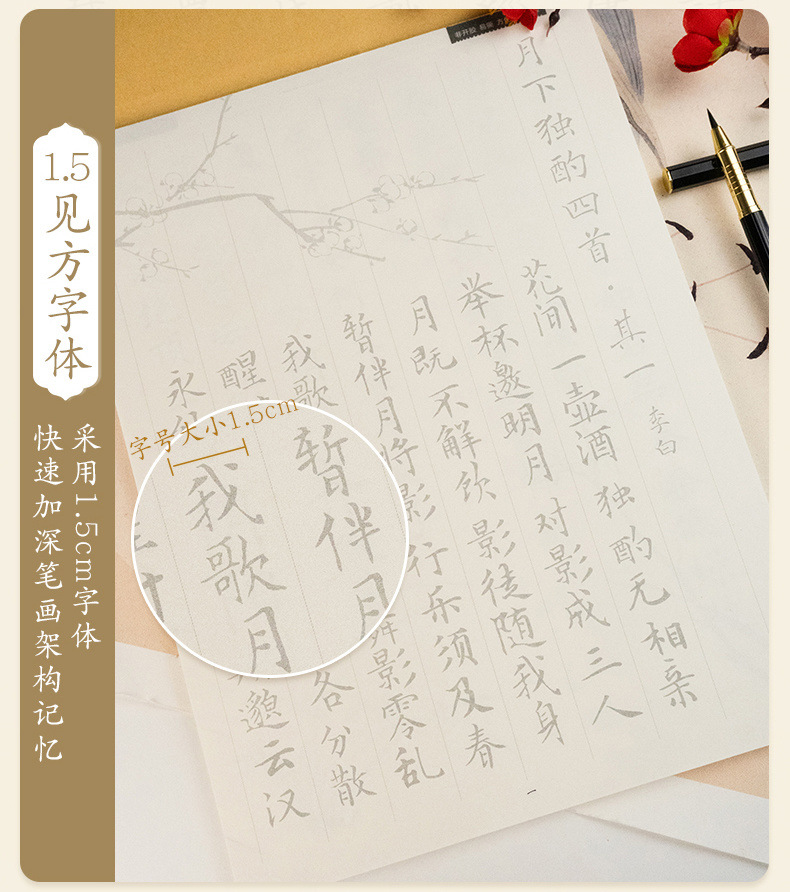 1.5见方字体
采用1.5cm字体
快速加深笔画架构记忆
月下独酌四首·其一 李白
花间一壶酒 独酌无相亲
举杯邀明月 对影成三人
月既不解饮 影徒随我身
暂伴月将影 行乐须及春
我歌 舞影零乱
醒 各分散
永 邈云汉
字号大小1.5cm
暂伴月
我歌月
一